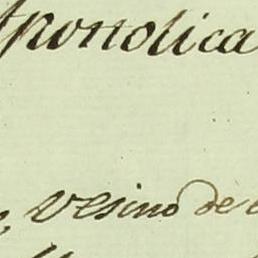 Apostolica
vesino de